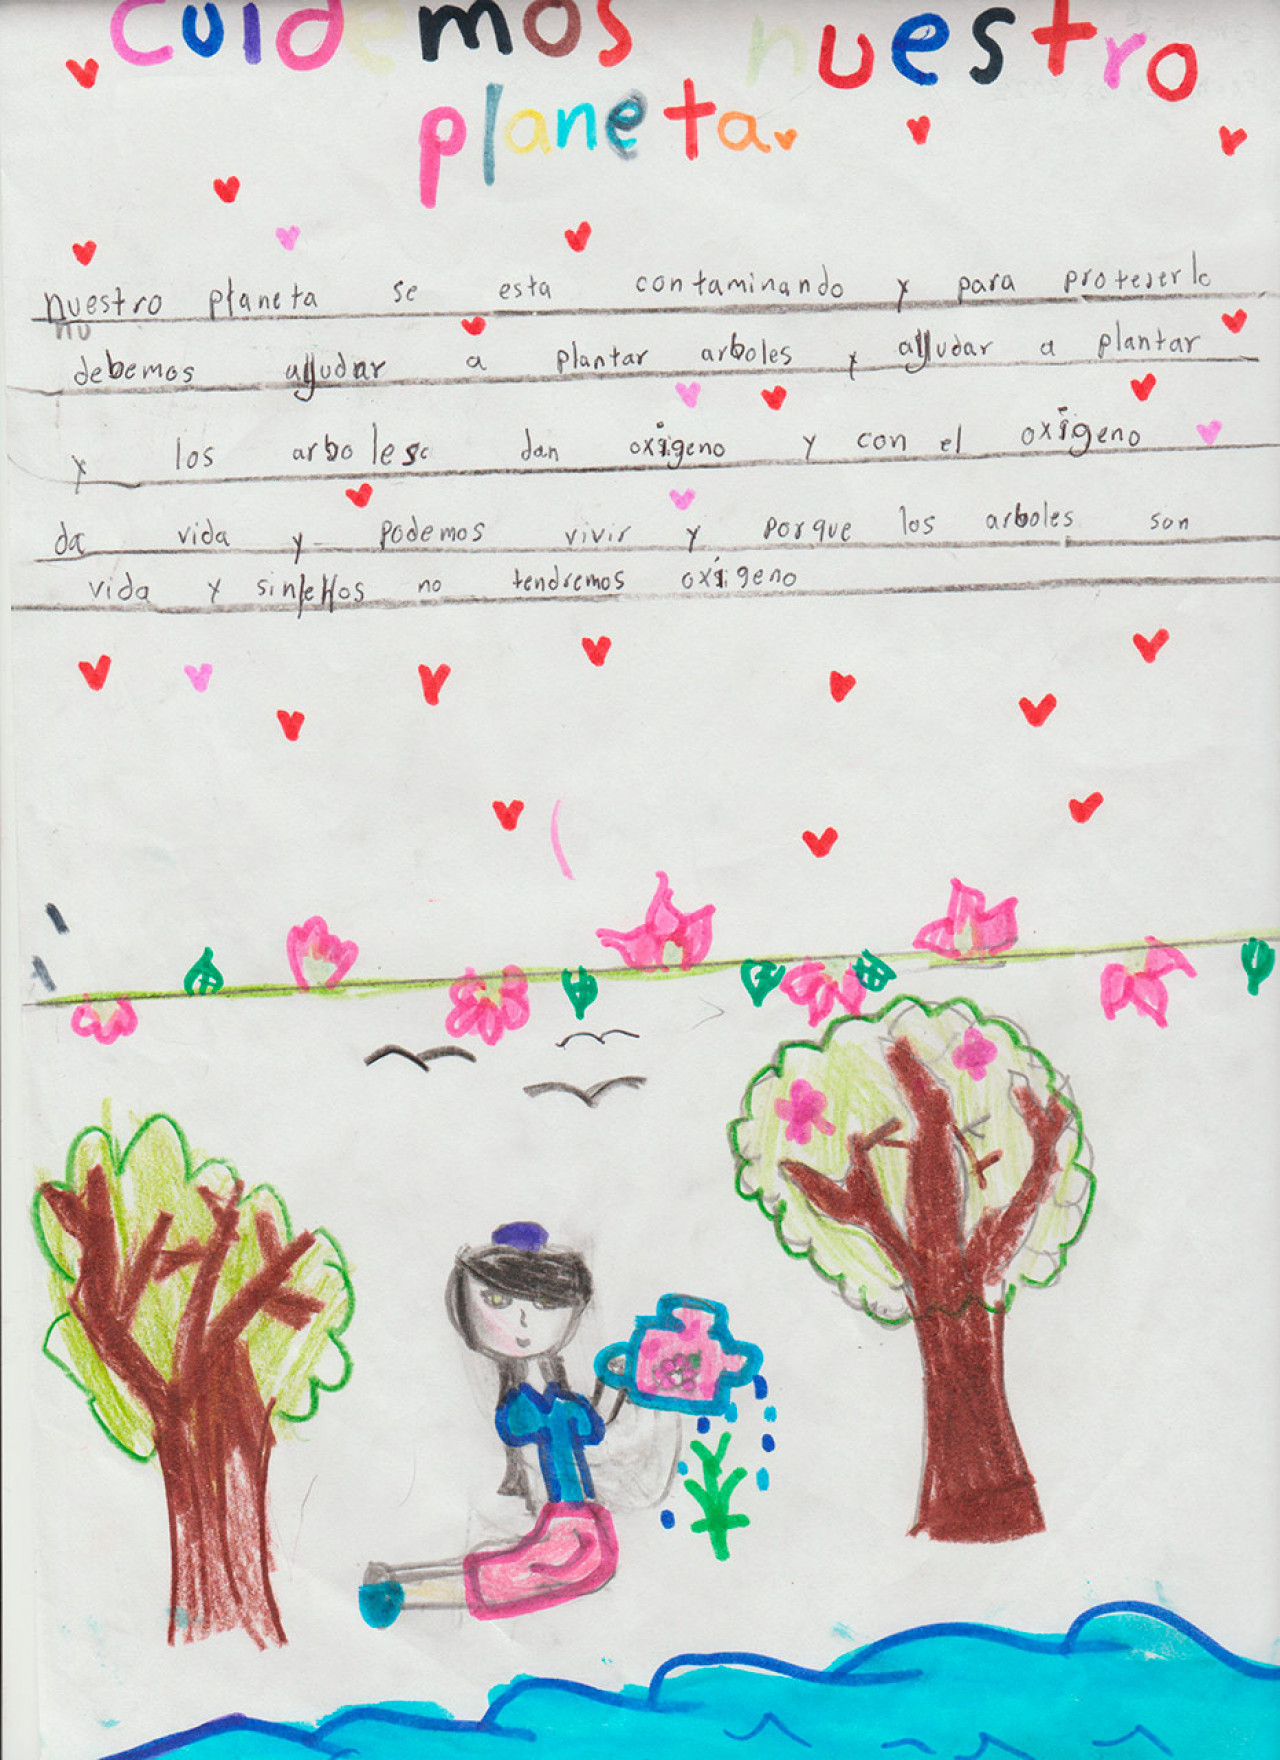 cuidemos nuestro
planeta
nuestro planeta se esta contaminando y para protejerlo
debemos ayudar a plantar arboles y ayudar a plantar
y los arboles dan oxigeno y con el oxigeno
da vida y podemos vivir y porque los arboles son
vida y sin ellos no tendremos oxigeno